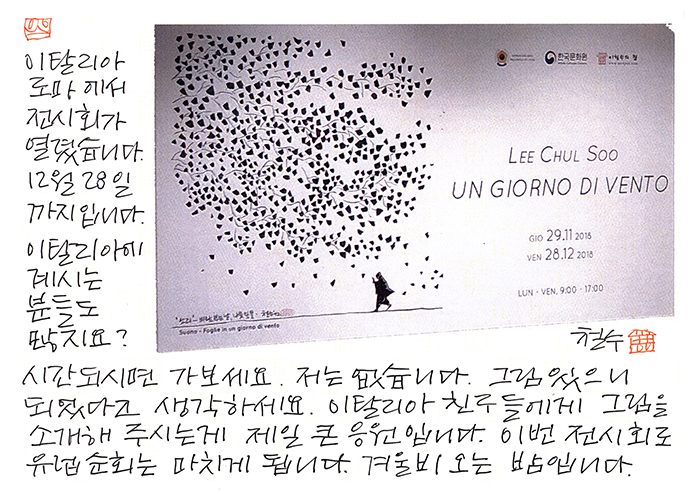 이탈리아
로마에서
전시회가
열렸습니다.
12월 28일
까지입니다.
이탈리아에
계시는
분들도
많지요?
한국문화원
LEE CHUL SOO
UN GIORNO DI VENTO
GIO 29.11 2018
VEN 28.12 2018
LUN - VEN, 9:00 - 17:00
Suono - Foglie in un giorno di vento
철수
시간되시면 가보세요. 저는 없습니다. 그림 있으니
되었다고 생각하세요. 이탈리아 친구들에게 그림을
소개해 주시는게 제일 큰 응원입니다. 이번 전시회로
유럽순회는 마치게 됩니다. 겨울비 오는 밤입니다.